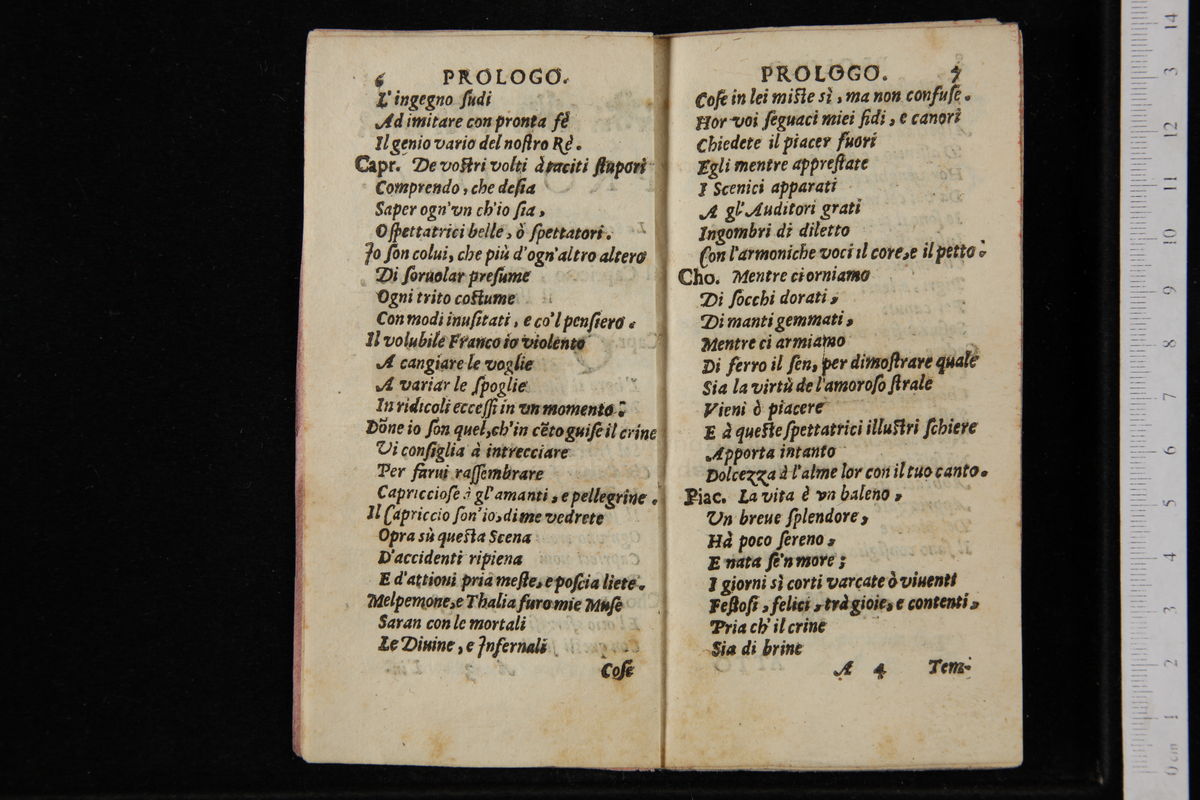 6 PROLOGO.
L'ingegno ſudi
Ad imitare con pronta fè
Il genio vario del noſtro Rè.
Capr. De voſtri volti à taciti ſtupori
Comprendo, che deſia
Saper ogn'vn ch'io ſia,
O ſpettatrici belle, ò ſpettatori.
Io ſon colui, che più d'ogn'altro altero
Di ſoruolar preſume
Ogni trito coſtume
Con modi inuſitati, e co'l penſiero.
Il volubile Franco io violento
A cangiare le voglie
A variar le ſpoglie
In ridicoli ecceſſi in vn momento:
Dõne io ſon quel, ch'in cẽto guiſe il crine
Vi conſiglia à intrecciare
Per farui raſſembrare
Capriccioſe à gl'amanti, e pellegrine.
Il Capriccio ſon'io, di me vedrete
Opra sù queſta Scena
D'accidenti ripiena
E d'attioni pria meſte, e poſcia liete.
Melpemone, e Thalia furo mie Muſe
Saran con le mortali
Le Diuine, e Infernali
Coſe
PROLOGO. 7
Coſe in lei miſte sì, ma non confuſe.
Hor voi ſeguaci miei fidi, e canori
Chiedete il piacer fuori
Egli mentre appreſtate
I Scenici apparati
A gl'Auditori grati
Ingombri di diletto
Con l'armoniche voci il core, e il petto:
Cho. Mentre ci orniamo
Di ſocchi dorati,
Di manti gemmati,
Mentre ci armiamo
Di ferro il ſen, per dimoſtrare quale
Sia la virtù de l'amoroſo ſtrale
Vieni ò piacere
E à queſte ſpettatrici illuſtri ſchiere
Apporta intanto
Dolcezza à l'alme lor con il tuo canto.
Piac. La vita è vn baleno,
Vn breue ſplendore,
Hà poco ſereno,
E nata ſe'n more;
I giorni sì corti varcate ò viuenti
Feſtoſi, felici, trà gioie, e contenti,
Pria ch'il crine
Sia di brine
A 4 Tem-
14
3
12
11
10
9
8
7
6
5
4
3
2
1
0 cm